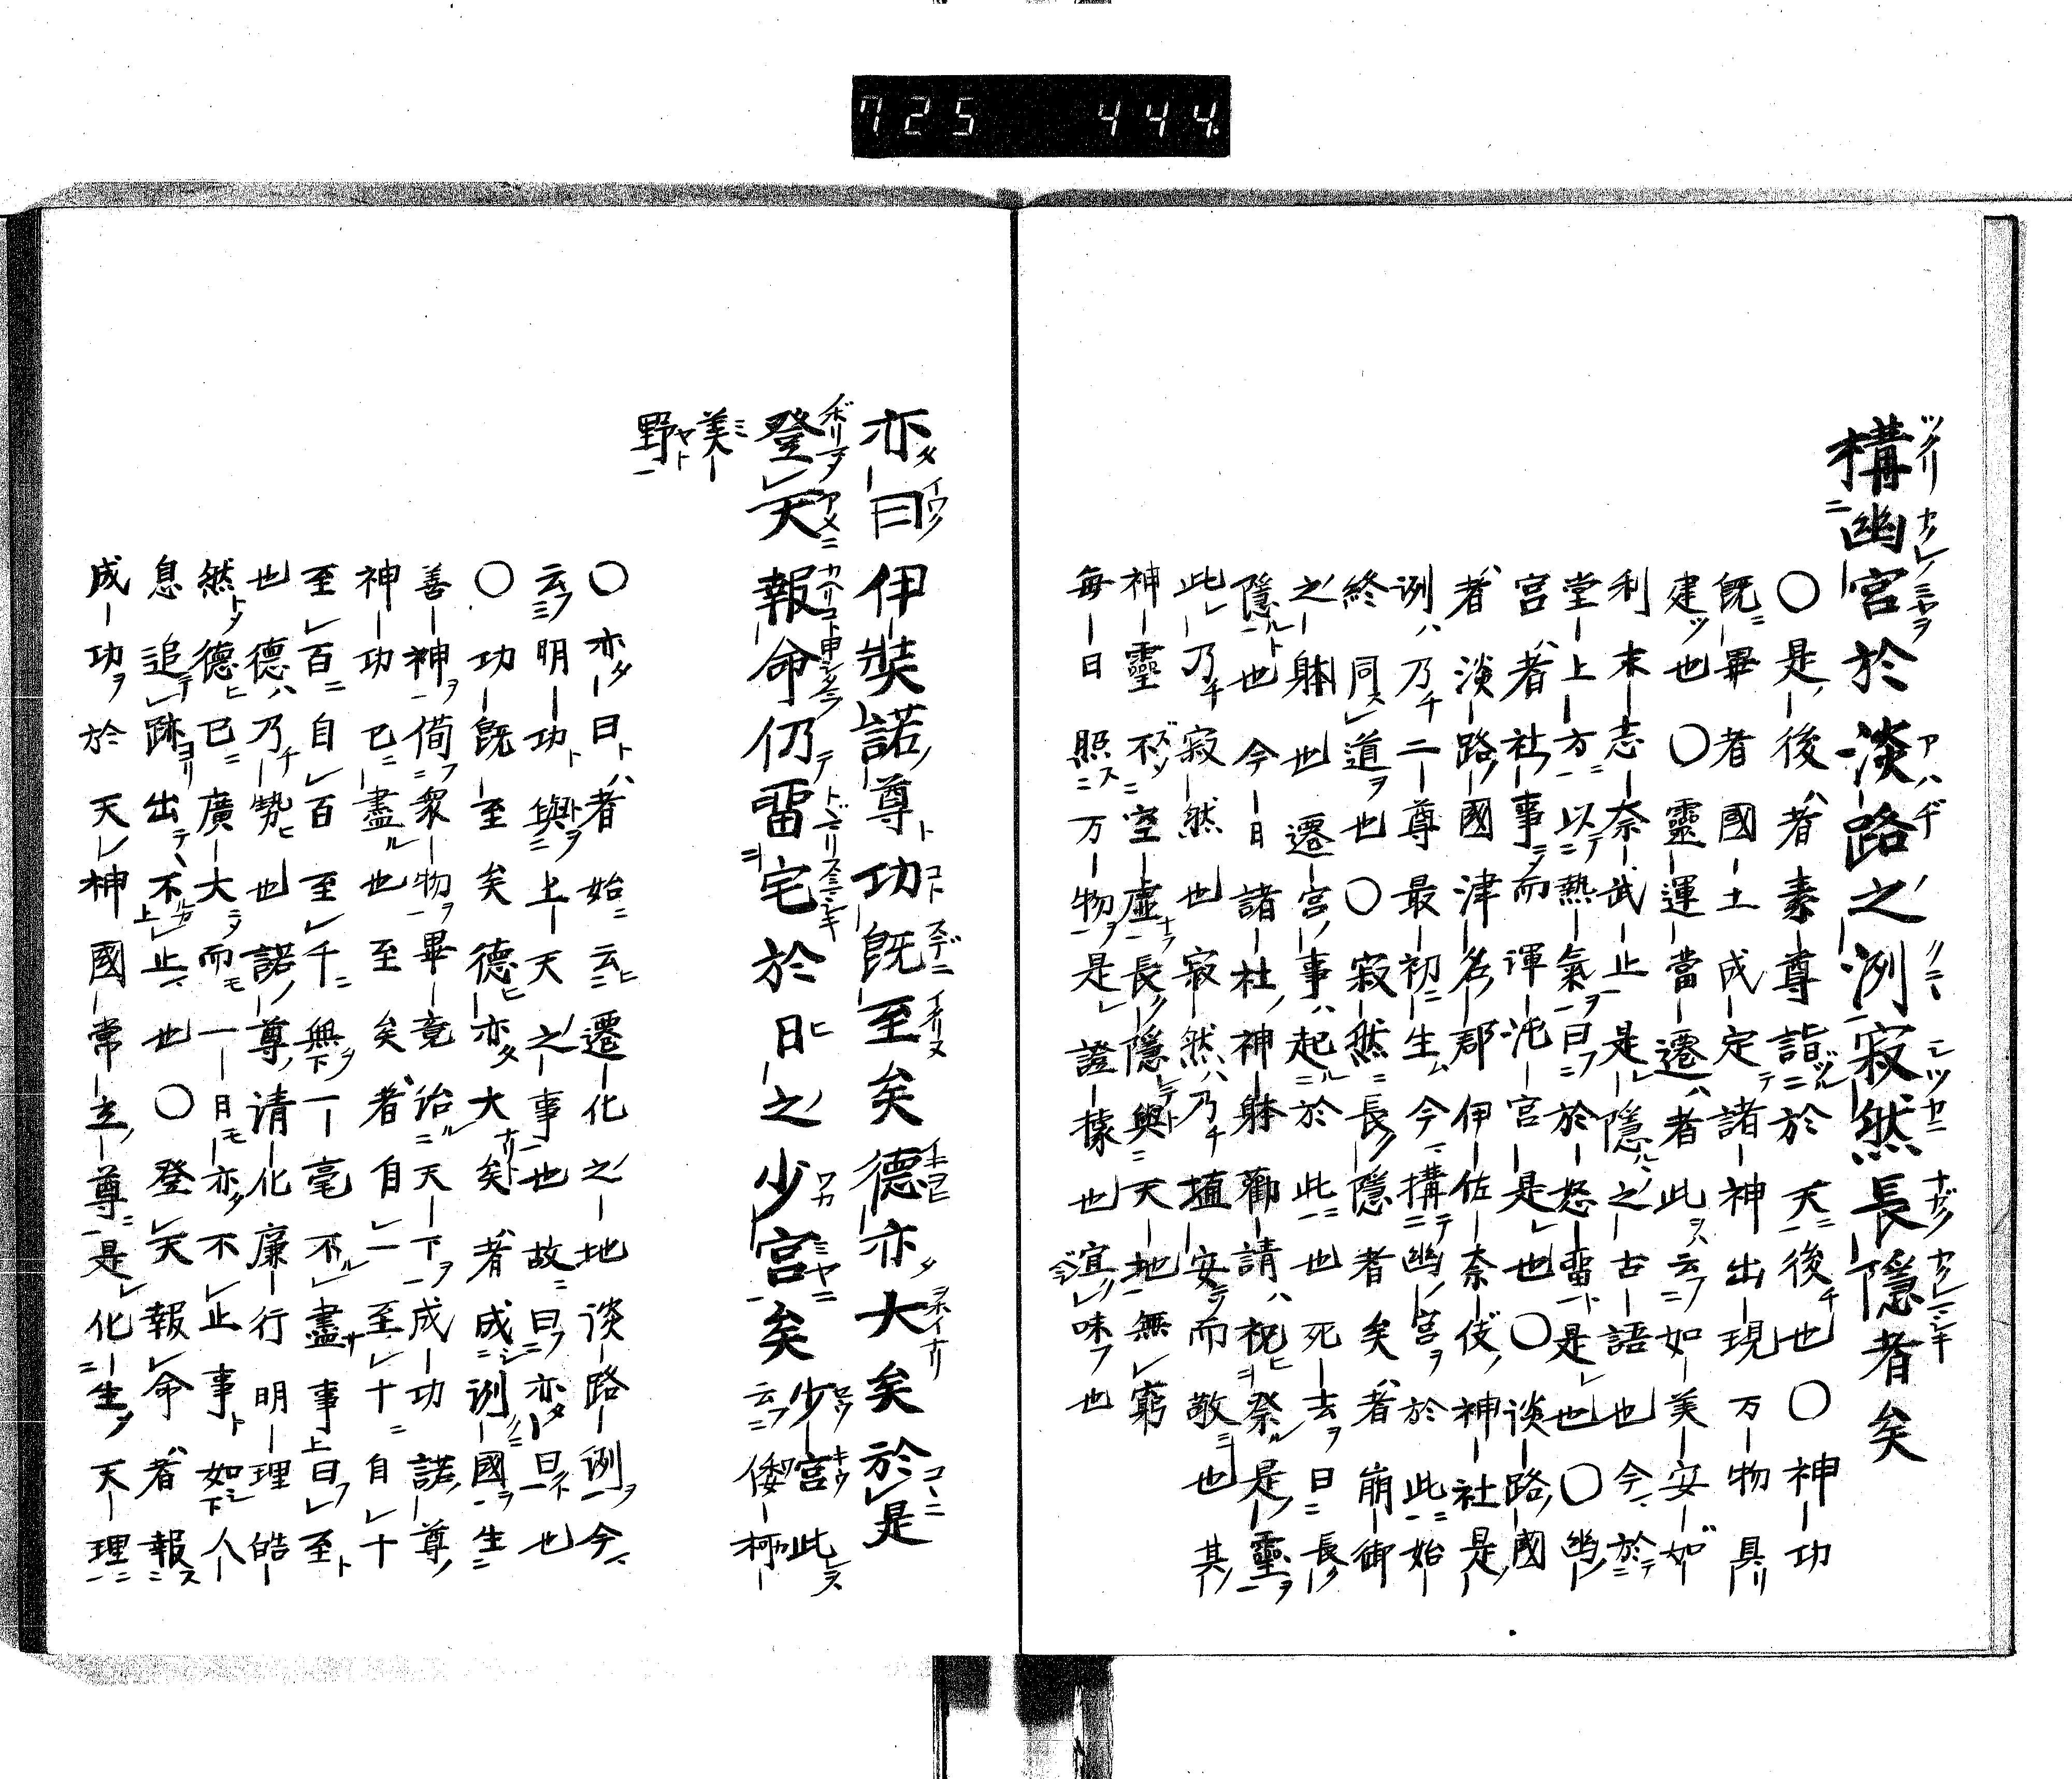 725 444.
構幽宮於淡路之洌寂然長隱者矣
○是後者素尊詣於天後也○神功
既畢者國土成定諸神出現万物具
建也○靈運當遷者此云如美安如
利末志奈武止是隱之古語也今於
堂上方以熱氣曰於怒畨是也○幽
宮者社事而渾沌宮是也○談路國
者淡路國津名郡伊佐奈伎神社是
洌乃二尊最初生今構幽宮於此始
終同道也○寂然長隱者矣者崩御
之躰也遷宮事起於此也死去曰長
隱也今日諸社神躰勸請祝祭是靈
此乃寂然也寂然乃埴安而敬也其
神靈不空虛長隱與天地無窮
每日照万物是證據也宜味也
亦曰伊奘諾尊功既至矣德亦大矣於是
登天報命仍畱宅於日之少宮矣少宮此云倭柯
美野
○亦曰者始云遷化之地談路洌今
云明功與上天之事也故曰亦曰也
○功既至矣德亦大矣者成洌國生
善神備衆物畢竟治天下成功諾尊
神功已盡也至矣者自一至十自十
至百自百至千無一毫不盡事曰至
也德乃勢也諾尊請化廉行明理皓
然德已廣大而一日亦不止事如人
息追跡出不止也○登天報命者報
成功於天神國常立尊是化生天理